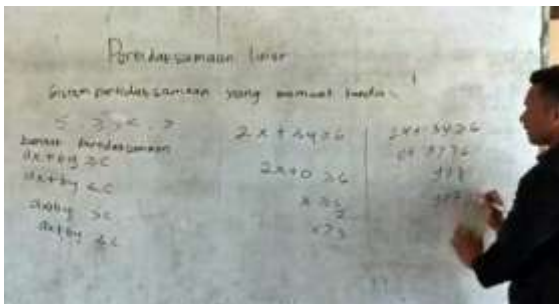 Pertidaksamaan linier
Sistem pertidaksamaan yang memuat tanda
≤ ≥, <, >
bentuk pertidaksamaan
ax+by ≥ C
ax+by ≤ C
ax+by >C
ax+by
2x+3y≥6
2x+0 ≥6
x ≥ 6
2
x ≥ 3
2x+3y≥6